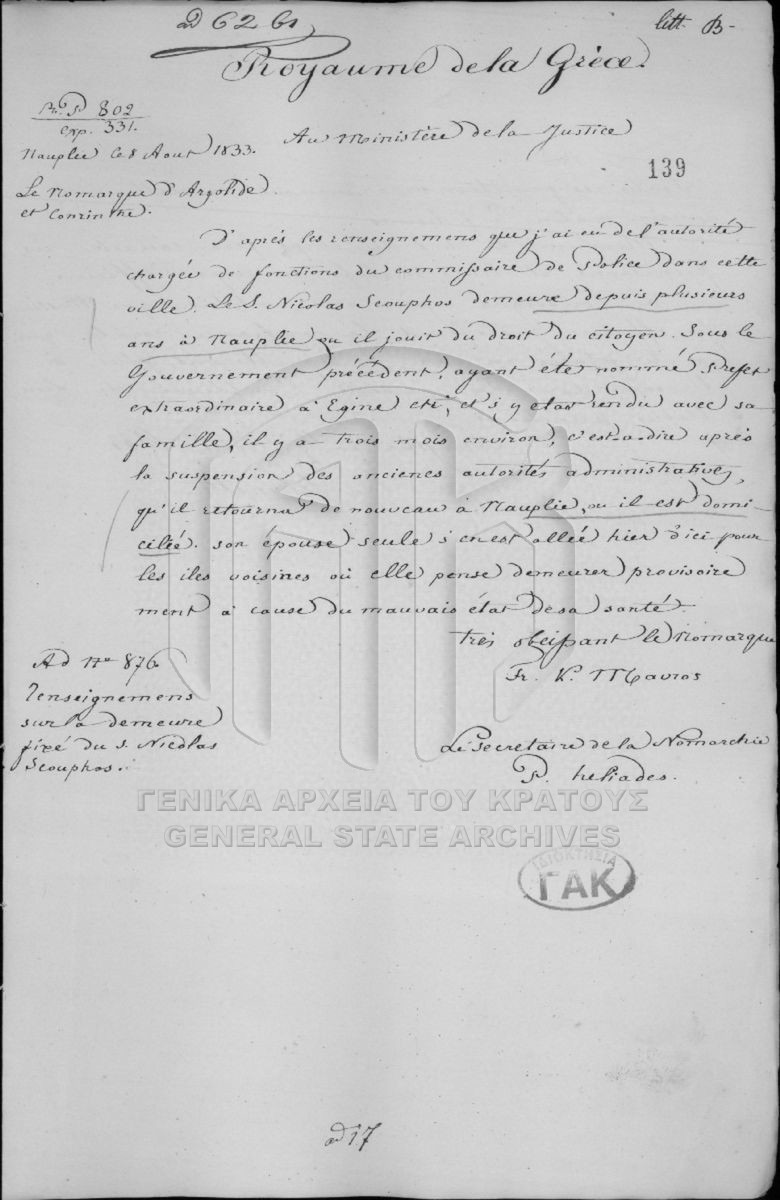 ad 62 b,
litt. B-
Royaume de la Grèce.
N° P 802
exp. 331.
Au Ministère de la Justice
Nauplie le 8 Aout 1833.
139
Le Nomarque d'Argolide
et Corinthe.
D'après les renseignemens que j'ai eu de l'autorité
chargée de fonctions du commissaire de Police dans cette
ville. Le S. Nicolas Scouphos demeure depuis plusieurs
ans à Nauplie ou il jouit du droit du citoyen. Sous le
Gouvernement précédent, ayant été nommé Prefet
extraordinaire à Egine etc, et s'y etat rendu avec sa
famille, il y a trois mois environ, c'est-a-dire après
la suspension des ancienes autorités administratives,
qu'il retourna de nouveau à Nauplie, ou il est domi-
cilié. son épouse seule s'en est allée hier d'ici pour
les iles voisines où elle pense demeurer provisoire
ment à cause du mauvais état de sa santé.
très obeissant le Nomarque
Fr. K. Mavros
Ad N° 876
Renseignemens
sur la demeure
fixé du S. Nicolas
Scouphos.
Le Secretaire de la Nomarchie
P. heliades.
ΓΕΝΙΚΑ ΑΡΧΕΙΑ ΤΟΥ ΚΡΑΤΟΥΣ
GENERAL STATE ARCHIVES
ΙΔΙΟΚΤΗΣΙΑ
ΓΑΚ
ad 17